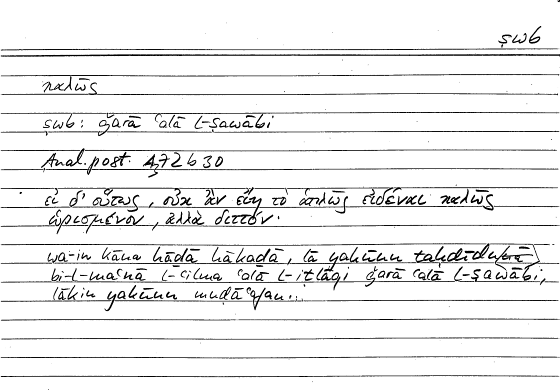 ṣwb
καλῶς
ṣwb: ǧarā ʿalā l-ṣawābi
Anal. post. 4, 72 b 30
εἰ δ' οὕτως, οὐκ ἂν εἴη τὸ ἁπλῶς εἰδέναι καλῶς
ὡρισμένον, ἀλλὰ διττόν.
wa-in kāna hāḏā hākaḏā, lā yakūnu taḥdīdu
bi-l-maʿnā l-ʿilma ʿalā l-iṭlāqi ǧarā ʿalā l-ṣawābi,
lākin yakūnu muḍāʿafan...